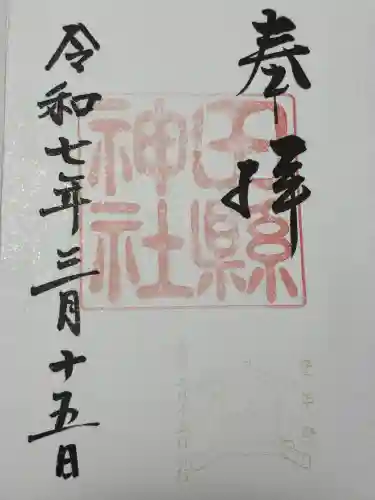 奉拝
田縣
神社
令和七年三月十五日